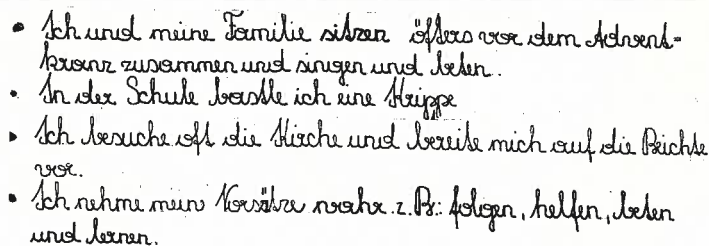 • Ich und meine Familie sitzen öfters vor dem Advent-
kranz zusammen und singen und beten.
• In der Schule bastle ich eine Krippe
• Ich besuche oft die Kirche und bereite mich auf die Beichte
vor.
• Ich nehme mein Vorsätze wahr. z.B.: folgen, helfen, beten
und lernen.